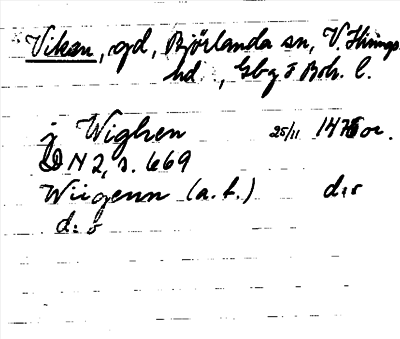 Viken, gd, Björlanda sn, V. Hisings
hd., Gbg o Boh. l.
j Wighen 25/11 1475 or.
DN 2, s. 669
Wiigenn (a. t.) d:o
d:o